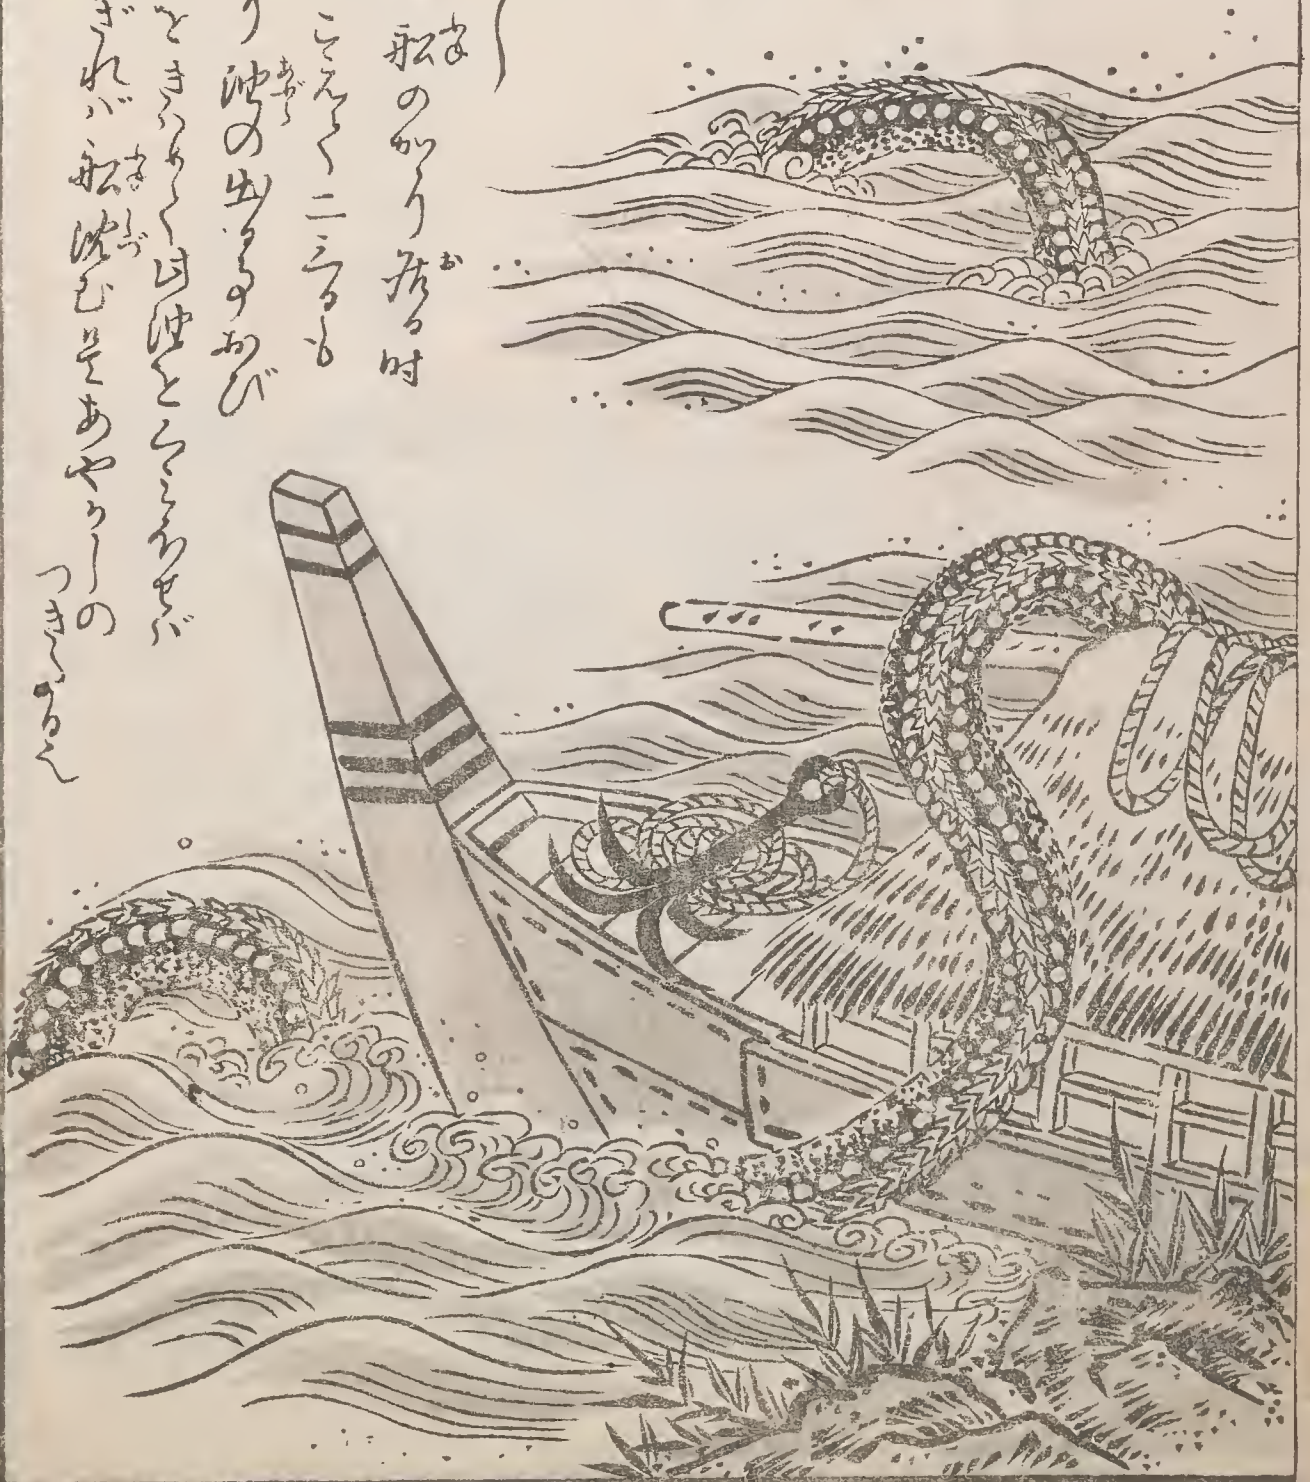 船のかゝり居る時
こえて二三日も
り油の出る事おび
をきハめて此油をくミほせバ
ざれバ船沈む是あやかしの
つきたる也